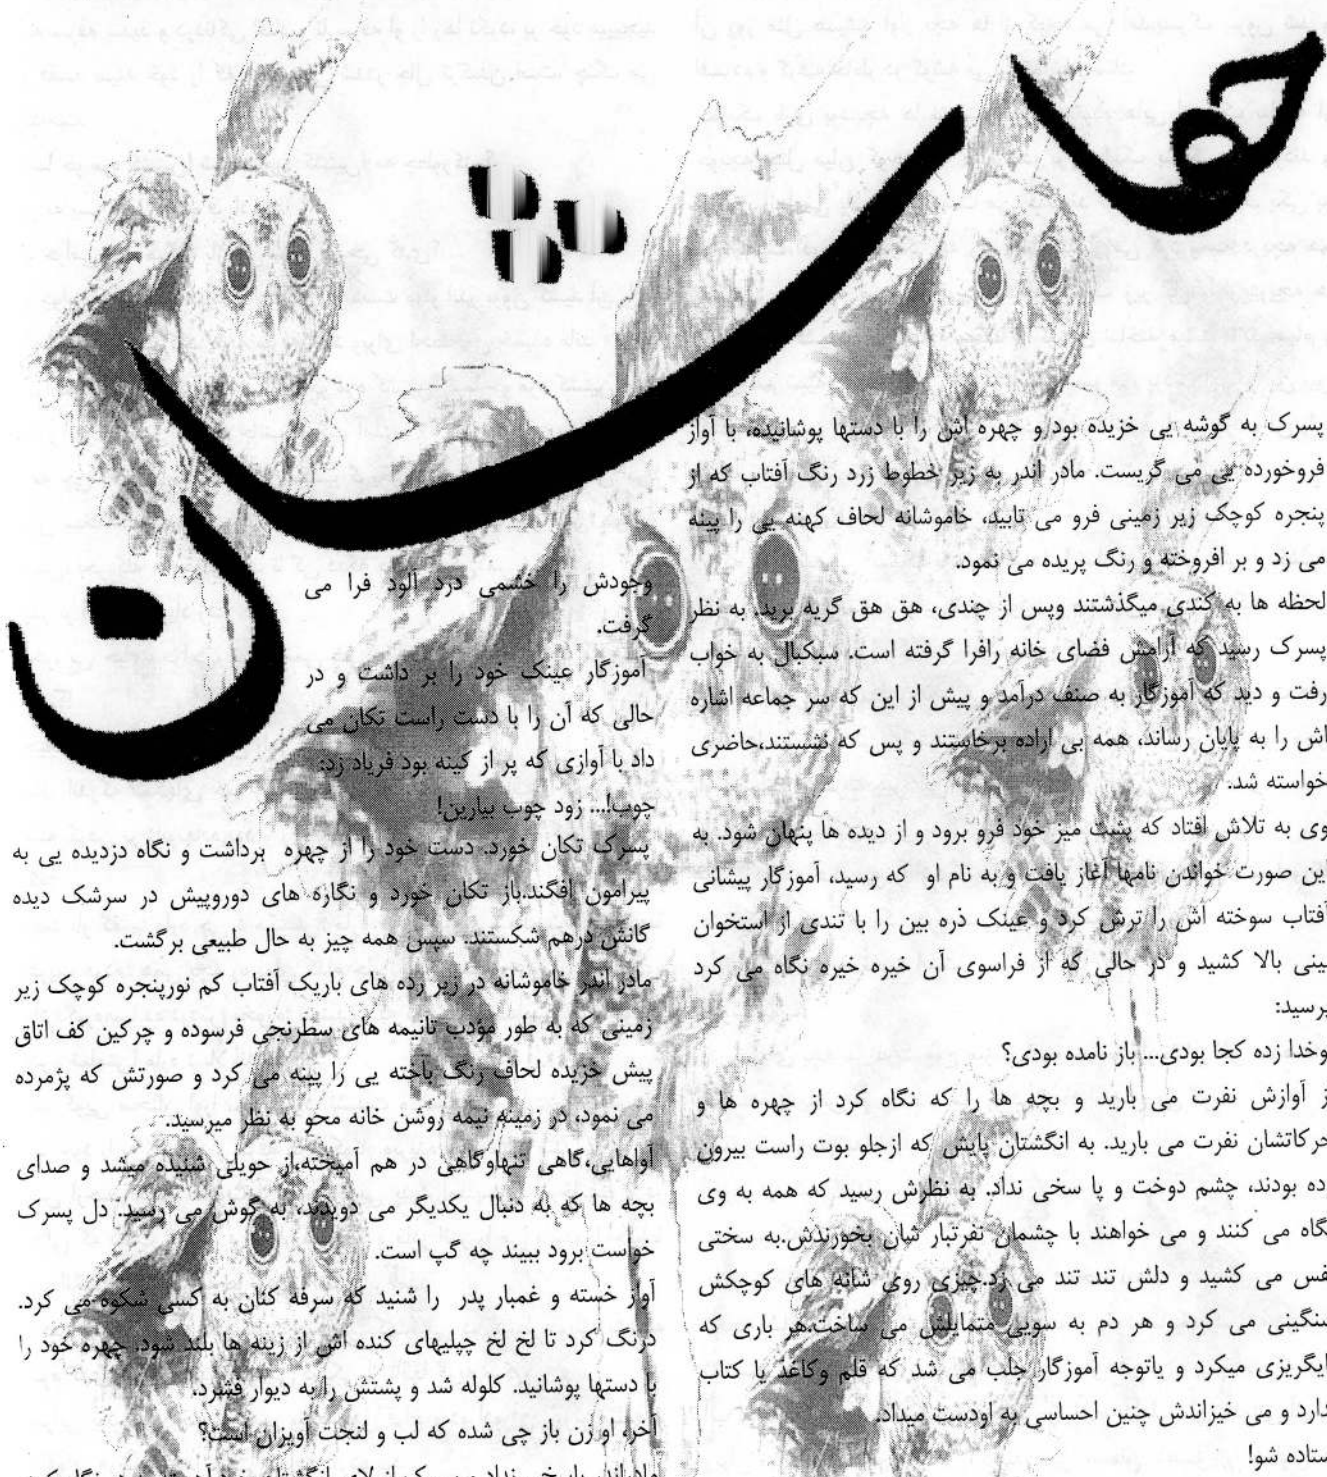 پسرک به گوشه یی خزیده بود و چهره اش را با دستها پوشانیده، با آواز
فروخورده یی می گریست. مادر اندر به زیر خطوط زرد رنگ آفتاب که از
پنجره کوچک زیر زمینی فرو می تابید، خاموشانه لحاف کهنه یی را پینه
می زد و بر افروخته و رنگ پریده می نمود.
لحظه ها به کندی میگذشتند وپس از چندی، هق هق گریه برید. به نظر
پسرک رسید که آرامش فضای خانه رافرا گرفته است. سبکبال به خواب
رفت و دید که آموزگار به صنف درآمد و پیش از این که سر جماعه اشاره
اش را به پایان رساند، همه بی اراده برخاستند و پس که نشستند،حاضری
خواسته شد.
وی به تلاش افتاد که پشت میز خود فرو برود و از دیده ها پنهان شود. به
این صورت خواندن نامها آغاز یافت و به نام او که رسید، آموزگار پیشانی
آفتاب سوخته اش را ترش کرد و عینک ذره بین را با تندی از استخوان
بینی بالا کشید و در حالی که از فراسوی آن خیره خیره نگاه می کرد
پرسید:
وخدا زده کجا بودی... باز نامده بودی؟
ز آوازش نفرت می بارید و بچه ها را که نگاه کرد از چهره ها و
حرکاتشان نفرت می بارید. به انگشتان پایش که ازجلو بوت راست بیرون
ده بودند، چشم دوخت و پا سخی نداد. به نظرش رسید که همه به وی
نگاه می کنند و می خواهند با چشمان نفرتبار شان بخورندش.به سختی
نفس می کشید و دلش تند تند می زد.چیزی روی شانه های کوچکش
سنگینی می کرد و هر دم به سویی متمایلش می ساخت.هر باری که
ایگریزی میکرد و یاتوجه آموزگار جلب می شد که قلم وکاغذ یا کتاب
دارد و می خیزاندش چنین احساسی به اودست میداد.
ستاده شو!
وجودش را خشمی درد آلود فرا می
گرفت.
آموزگار عینک خود را بر داشت و در
حالی که آن را با دست راست تکان می
داد با آوازی که پر از کینه بود فریاد زد:
چوب!... زود چوب بیارین!
پسرک تکان خورد. دست خود را از چهره برداشت و نگاه دزدیده یی به
پیرامون افگند.باز تکان خورد و نگاره های دوروپیش در سرشک دیده
گانش درهم شکستند. سپس همه چیز به حال طبیعی برگشت.
مادر اندر خاموشانه در زیر رده های باریک آفتاب کم نورپنجره کوچک زیر
زمینی که به طور مؤدب تانیمه های سطرنجی فرسوده و چرکین کف اتاق
پیش خزیده لحاف رنگ باخته یی را پینه می کرد و صورتش که پژمرده
می نمود، در زمینه نیمه روشن خانه محو به نظر میرسید.
آواهایی،گاهی تنهاوگاهی در هم آمیخته،از حویلی شنیده میشد و صدای
بچه ها که به دنبال یکدیگر می دویدند، به گوش می رسید. دل پسرک
خواست برود ببیند چه گپ است.
آواز خسته و غمبار پدر را شنید که سرفه کنان به کسی شکوه می کرد.
درنگ کرد تا لخ لخ چپلیهای کنده اش از زینه ها بلند شود. چهره خود را
با دستها پوشانید. کلوله شد و پشتش را به دیوار فشرد.
آخر، او زن باز چی شده که لب و لنجت آویزان است؟